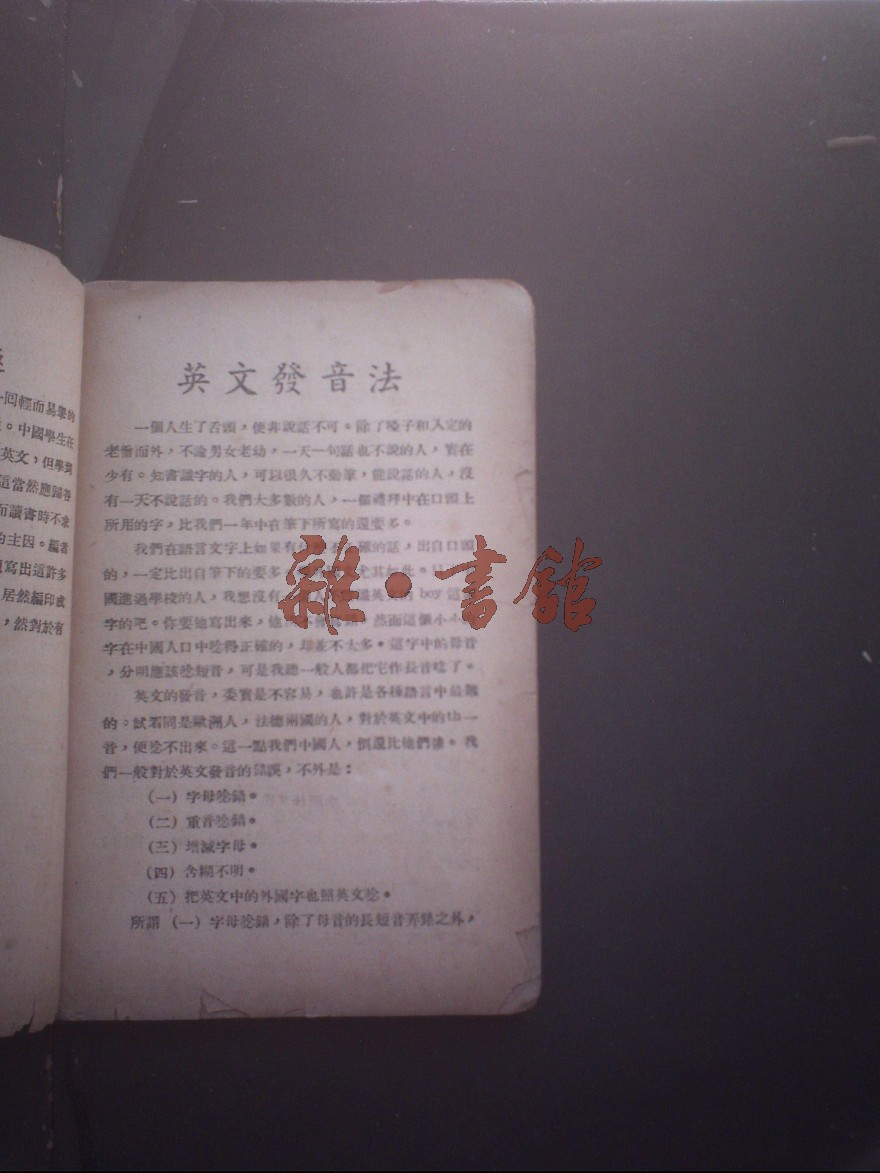 一回輕而易舉的
。中國學生在
英文，但學到
這當然應歸咎
而讀書時不求
的主因。編著
寫出這許多
居然編印成
，然對於有
英文發音法
一個人生了舌頭，便非說話不可。除了啞子和入定的
老僧而外，不論男女老幼，一天一句話也不說的人，實在
少有。知書識字的人，可以很久不動筆，能說話的人，沒
有一天不說話的。我們大多數的人，一個禮拜中在口頭上
所用的字，比我們一年中在筆下所寫的還要多。
我們在語言文字上如果有 確的話，出自口頭
的，一定比出自筆下的要多， 尤其如此。
國進過學校的人，我想沒有 英文的 boy 這
字的吧。你要他寫出來，他 然而這個小小
字在中國人口中唸得正確的，却並不太多。這字中的母音
，分明應該唸短音，可是我聽一般人都把它作長音唸了。
英文的發音，委實是不容易，也許是各種語言中最難
的。試看同是歐洲人，法德兩國的人，對於英文中的th一
音，便唸不出來。這一點我們中國人，倒還比他們強。我
們一般對於英文發音的錯誤，不外是：
（一）字母唸錯。
（二）重音唸錯。
（三）增減字母。
（四）含糊不明。
（五）把英文中的外國字也照英文唸。
所謂（一）字母唸錯，除了母音的長短音弄錯之外，
雜·書館